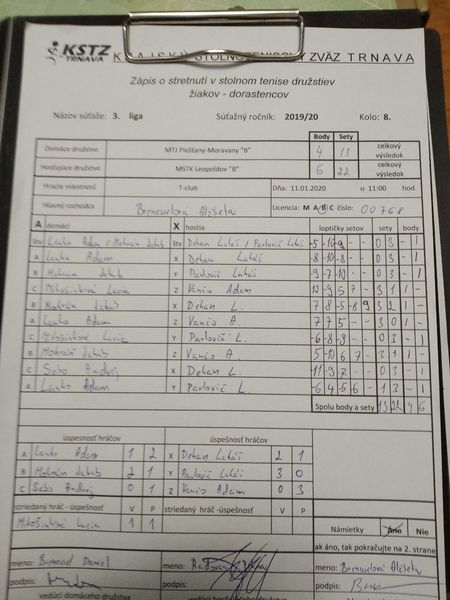 KSTZ TRNAVA
KRAJSKÝ STOLNOTENISOVÝ ZVÄZ TRNAVA
Zápis o stretnutí v stolnom tenise družstiev
žiakov - dorastencov
Názov súťaže: 3. liga Súťažný ročník: 2019/20 Kolo: 8.
Body Sety
Domáce družstvo MTJ Piešťany-Moravany "B" 4 13 celkový výsledok
Hosťujúce družstvo MSTK Leopoldov "B" 6 22 celkový výsledok
Hracia miestnosť T-club Dňa: 11.01.2020 o 11:00 hod.
Hlavný rozhodca Licencia: M A B C číslo: 00768
A domáci X hostia loptičky setov sety body
štv Lauko Adam / Jakub štv Dekan Lukáš / Pavlovič Lukáš -5 -10 -9 - - 0 3 - 1
A Lauko Adam X Dekan Lukáš -8 -10 -8 - - 0 3 - 1
B Jakub Y Pavlovič Lukáš -9 -7 -10 - - 0 3 - 1
C Lucia Z Vančo Adam 10 -9 5 7 - 3 1 1 -
B X Dekan L. 7 8 -5 -8 9 3 2 1 -
A Lauko Adam Z Vančo A. 7 7 5 - - 3 0 1 -
C Lucia Y Pavlovič L. -6 -8 -9 - - 0 3 - 1
B Jakub Z Vančo A. -5 10 6 7 - 3 1 1 -
C Sebo Andrej X Dekan L. -11 -9 -7 - - 0 3 - 1
A Lauko Adam Y Pavlovič L. -6 4 -5 -6 - 1 3 - 1
Spolu body a sety 13 22 4 6
úspesnosť hráčov úspešnosť hráčov
A Lauko Adam 1 2 X Dekan Lukáš 2 1
B Jakub 2 1 Y Pavlovič Lukáš 3 0
C Sebo Andrej 0 1 Z Vančo Adam 0 3
striedaný hráč -úspešnosť V P striedaný hráč - úspešnosť V P
Lucia 1 1 Námietky Áno Nie
ak áno, tak pokračujte na 2. strane
meno: Daniel meno: meno:
podpis: podpis: podpis:
vedúci domáceho družstva vedúci hosťujúceho družstva hlavný rozhodca